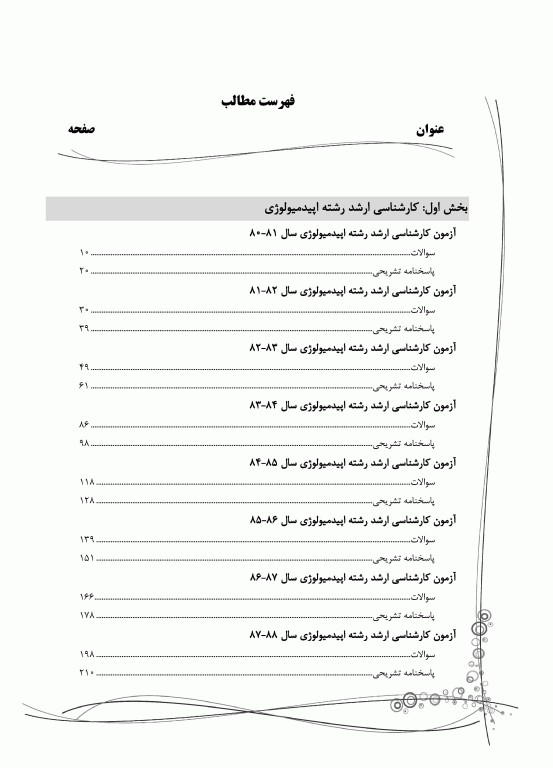 فهرست مطالب
عنوان صفحه
بخش اول: کارشناسی ارشد رشته اپیدمیولوژی
آزمون کارشناسی ارشد رشته اپیدمیولوژی سال ۸۱-۸۰
سوالات ۱۰
پاسخنامه تشریحی ۲۰
آزمون کارشناسی ارشد رشته اپیدمیولوژی سال ۸۲-۸۱
سوالات ۳۰
پاسخنامه تشریحی ۳۹
آزمون کارشناسی ارشد رشته اپیدمیولوژی سال ۸۳-۸۲
سوالات ۴۹
پاسخنامه تشریحی ۶۱
آزمون کارشناسی ارشد رشته اپیدمیولوژی سال ۸۴-۸۳
سوالات ۸۶
پاسخنامه تشریحی ۹۸
آزمون کارشناسی ارشد رشته اپیدمیولوژی سال ۸۵-۸۴
سوالات ۱۱۸
پاسخنامه تشریحی ۱۲۸
آزمون کارشناسی ارشد رشته اپیدمیولوژی سال ۸۶-۸۵
سوالات ۱۳۹
پاسخنامه تشریحی ۱۵۱
آزمون کارشناسی ارشد رشته اپیدمیولوژی سال ۸۷-۸۶
سوالات ۱۶۶
پاسخنامه تشریحی ۱۷۸
آزمون کارشناسی ارشد رشته اپیدمیولوژی سال ۸۸-۸۷
سوالات ۱۹۸
پاسخنامه تشریحی ۲۱۰